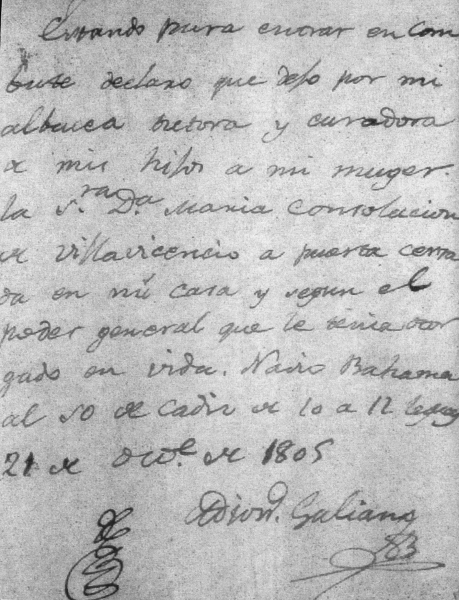 Estando para entrar en com
bate declaro que dejo por mi
albacea tutora y curadora
de mis hijos a mi muger
la S.ra D.a Maria Consolacion
de Villavicencio a puerta cerra
da en mi casa y segun el
poder general que le tenia otor
gado en vida. Navio Bahama
al SO de Cadiz de 10 a 12 leguas
21 de Oct.e de 1805
Galiano